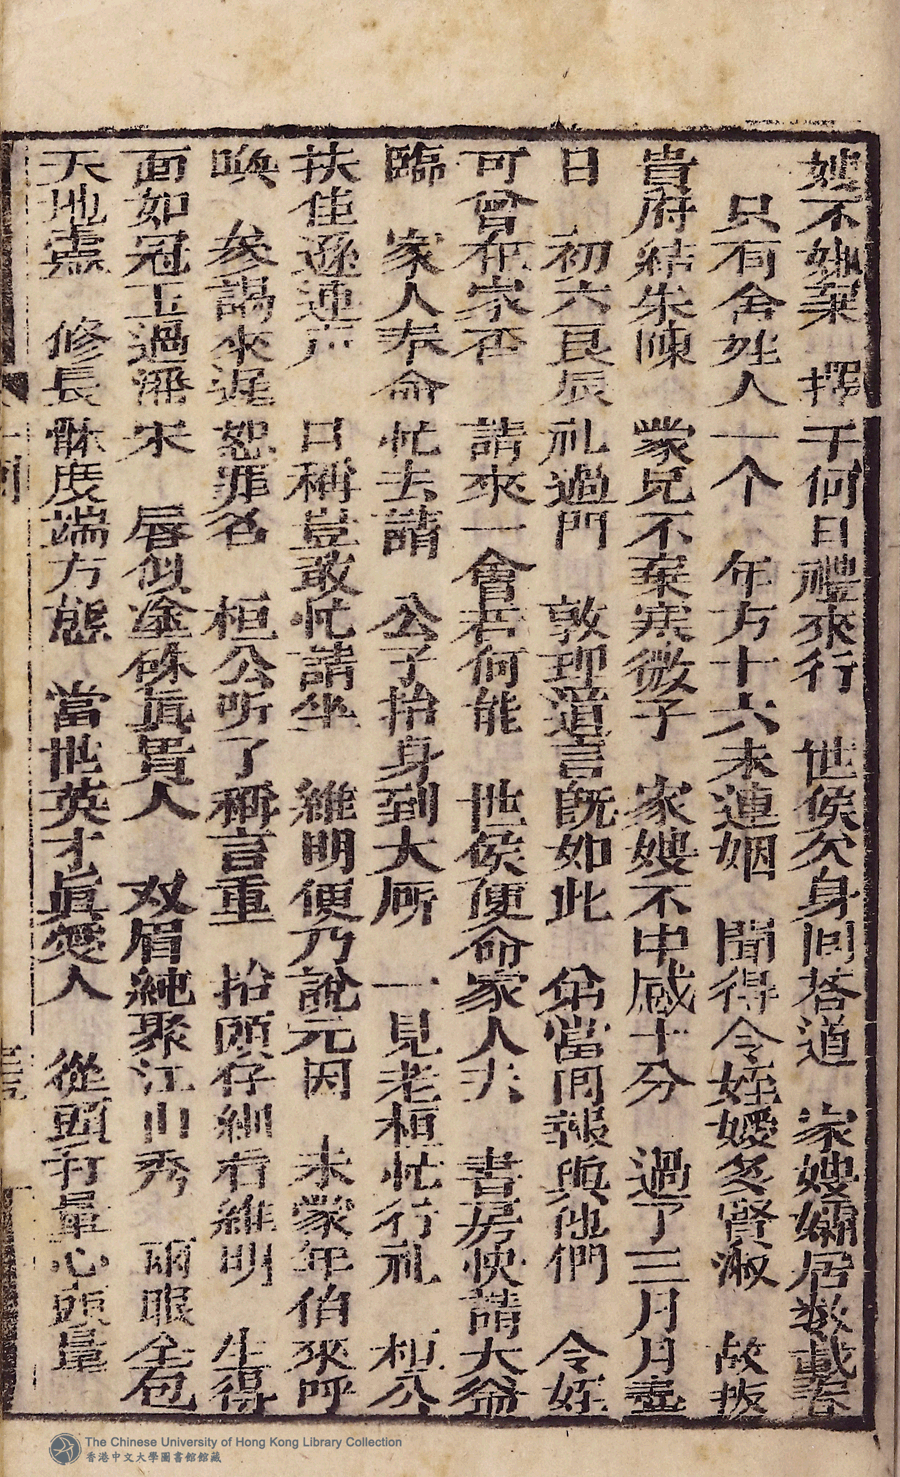 嫂不嫌棄　擇于何日禮來行　世侯欠身回答道　家嫂孀居数載春
只有舍姪人一个　年方十六未連姻　聞得令姪嬡多賢淑　故扳
貴府結朱陳　蒙兄不棄寒微子　家嫂不中感十分　過了三月月壷
日　初六良辰礼過門　敦理道言旣如此　当回報與他們　令姪
可曾在家否　請來一會若何能　世侯便命家人去　書房快請大爺
臨　家人奉命忙去請　公子抬身到大厛　一見老桓忙行礼　桓公
扶住遜連声　口稱豈敢忙請坐　維明便乃說元因　未蒙年伯來呼
喚　矣謁來遲恕罪名　桓公听了稱言重　抬頭仔細看維明　生得
面如冠玉過潘宋　唇似塗硃眞貴人　双眉純聚江山秀　兩眼全包
天地靈　修長骵度端方態　當世英才眞愛人　從頭打量心頭量
The Chinese University of Hong Kong Library Collection
香港中文大學圖書館館藏